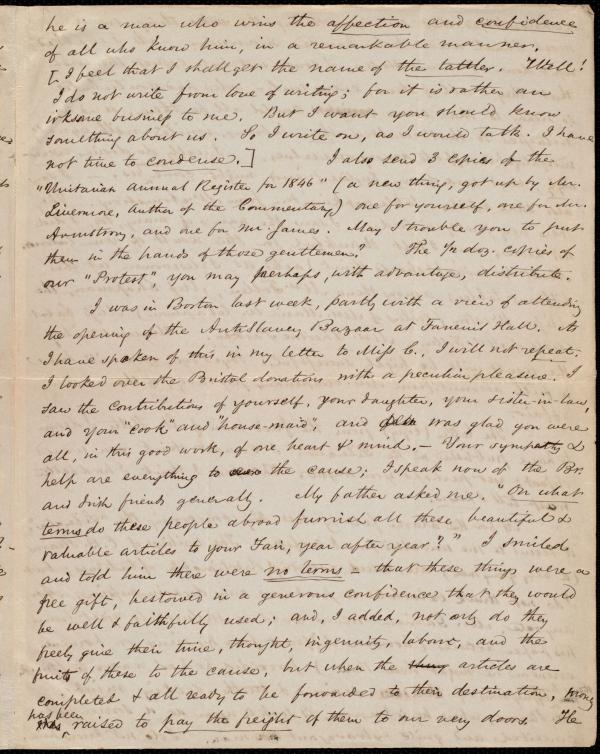 he is a man who wins the affection and confidence
of all who know him, in a remarkable manner.
[I feel that I shall get the name of the tattler. Well!
I do not write from love of writing; for it is rather an
irksome business to me. But I want you should know
something about us. So I write on, as I would talk. I have
not time to condense.] I also send 3 copies of the
"Unitarian Annual Register for 1846" (a new thing, got up by Mr.
Livermore, Author of the Commentary) one for yourself, one for Mr.
Armstrong, and one for Mr. James. May I trouble you to put
them in the hands of those gentlemen? The ½ doz. copies of
our "Protest", you may perhaps, with advantage, distribute.
I was in Boston last week, partly with a view of attending
the opening of the AntiSlavery Bazaar at Faneuil Hall. As
I have spoken of this in my letter to Miss C., I will not repeat.
I looked over the Bristol donations with a peculiar pleasure. I
saw the contributions of yourself, your daughter, your sister-in-law,
and your "cook" and "house-maid", and was glad you were
all, in this good work, of one heart & mind. — Your sympathy &
help are everything to the cause; I speak now of the Br.
and Irish friends generally. My father asked me, "On what
terms do these people abroad furnish all these beautiful &
valuable articles to your Fair, year after year?" I smiled
and told him there were no terms — that these things were a
free gift, bestowed in a generous confidence that they would
be well & faithfully used; and, I added, not only do they
freely give their time, thought, ingenuity, labour, and the
fruits of these to the cause, but when the articles are
completed & all ready to be forwarded to their destination, money
has been raised to pay the freight of them to our very doors. He